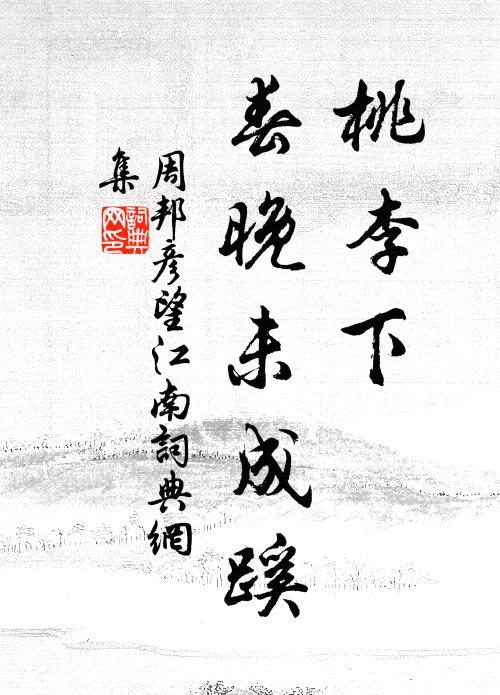 桃李下
春晚未成蹊
周邦彥望江南詞典網
集
詞典
网印